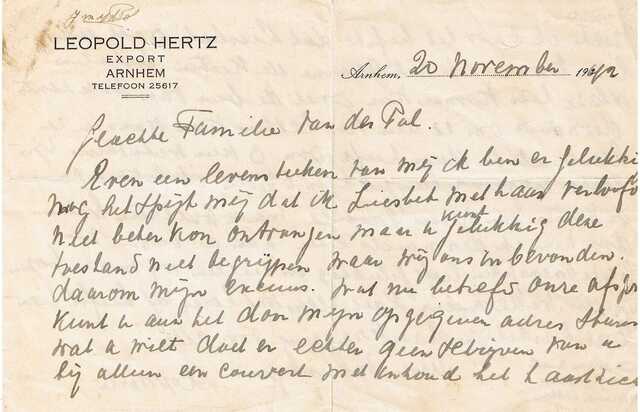 LEOPOLD HERTZ
EXPORT
ARNHEM
TELEFOON 25617
Arnhem, 20 November 1942
Geachte Familie van der Pal.
Even een levensteeken van mij ik ben er gelukkig
nog het spijt mij dat ik Liesbet met haar verloofd
niet beter kon ontvangen maar u kunt gelukkig deze
toestand niet begrijpen waar wij ons in bevonden.
daarom mijn excuus. wat nu betreft onze afspr
kunt u aan het door mijn opgegeven adres sturen
wat u wilt doet er echter geen schrijven van u
bij alleen een couvert met inhoud het